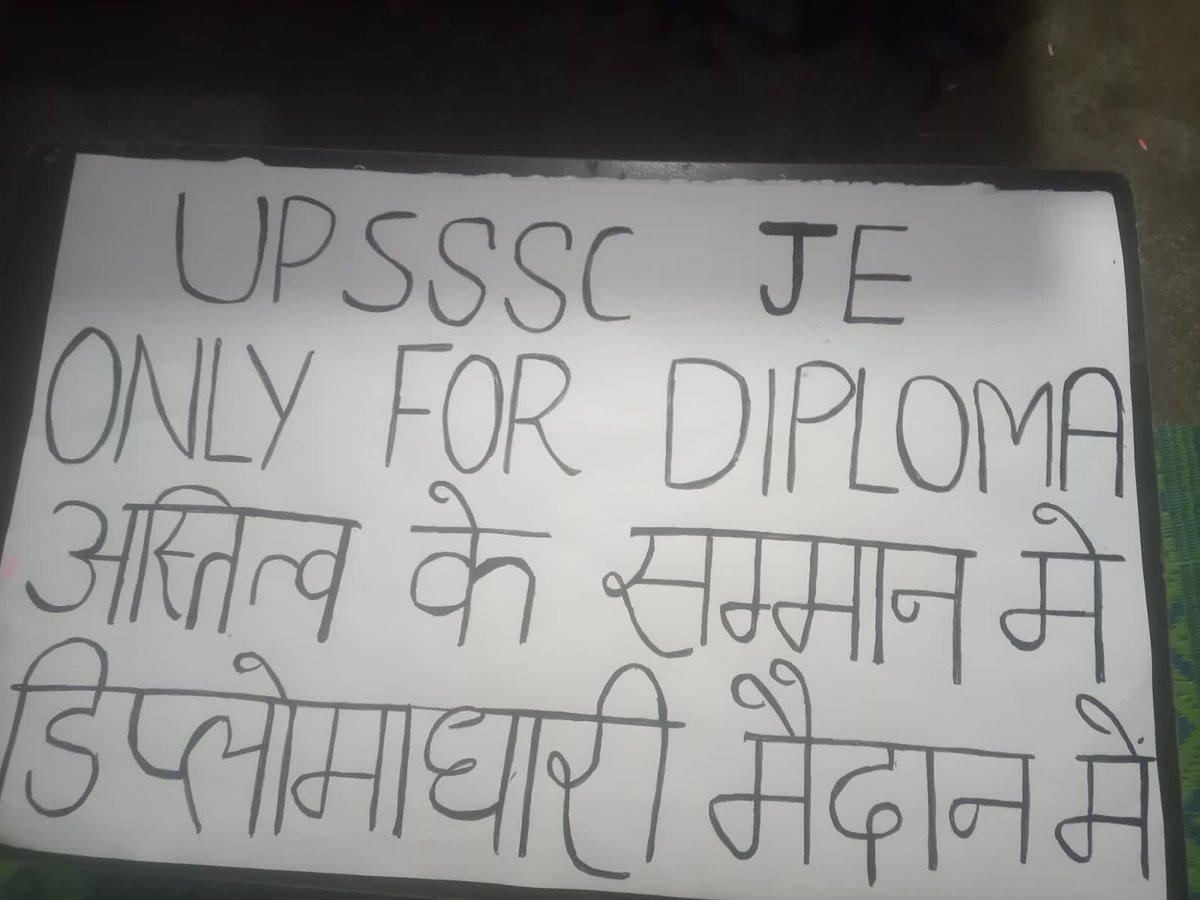 UPSSSC JE
ONLY FOR DIPLOMA
अस्तित्व के सम्मान मे
डिप्लोमाधारी मैदान में